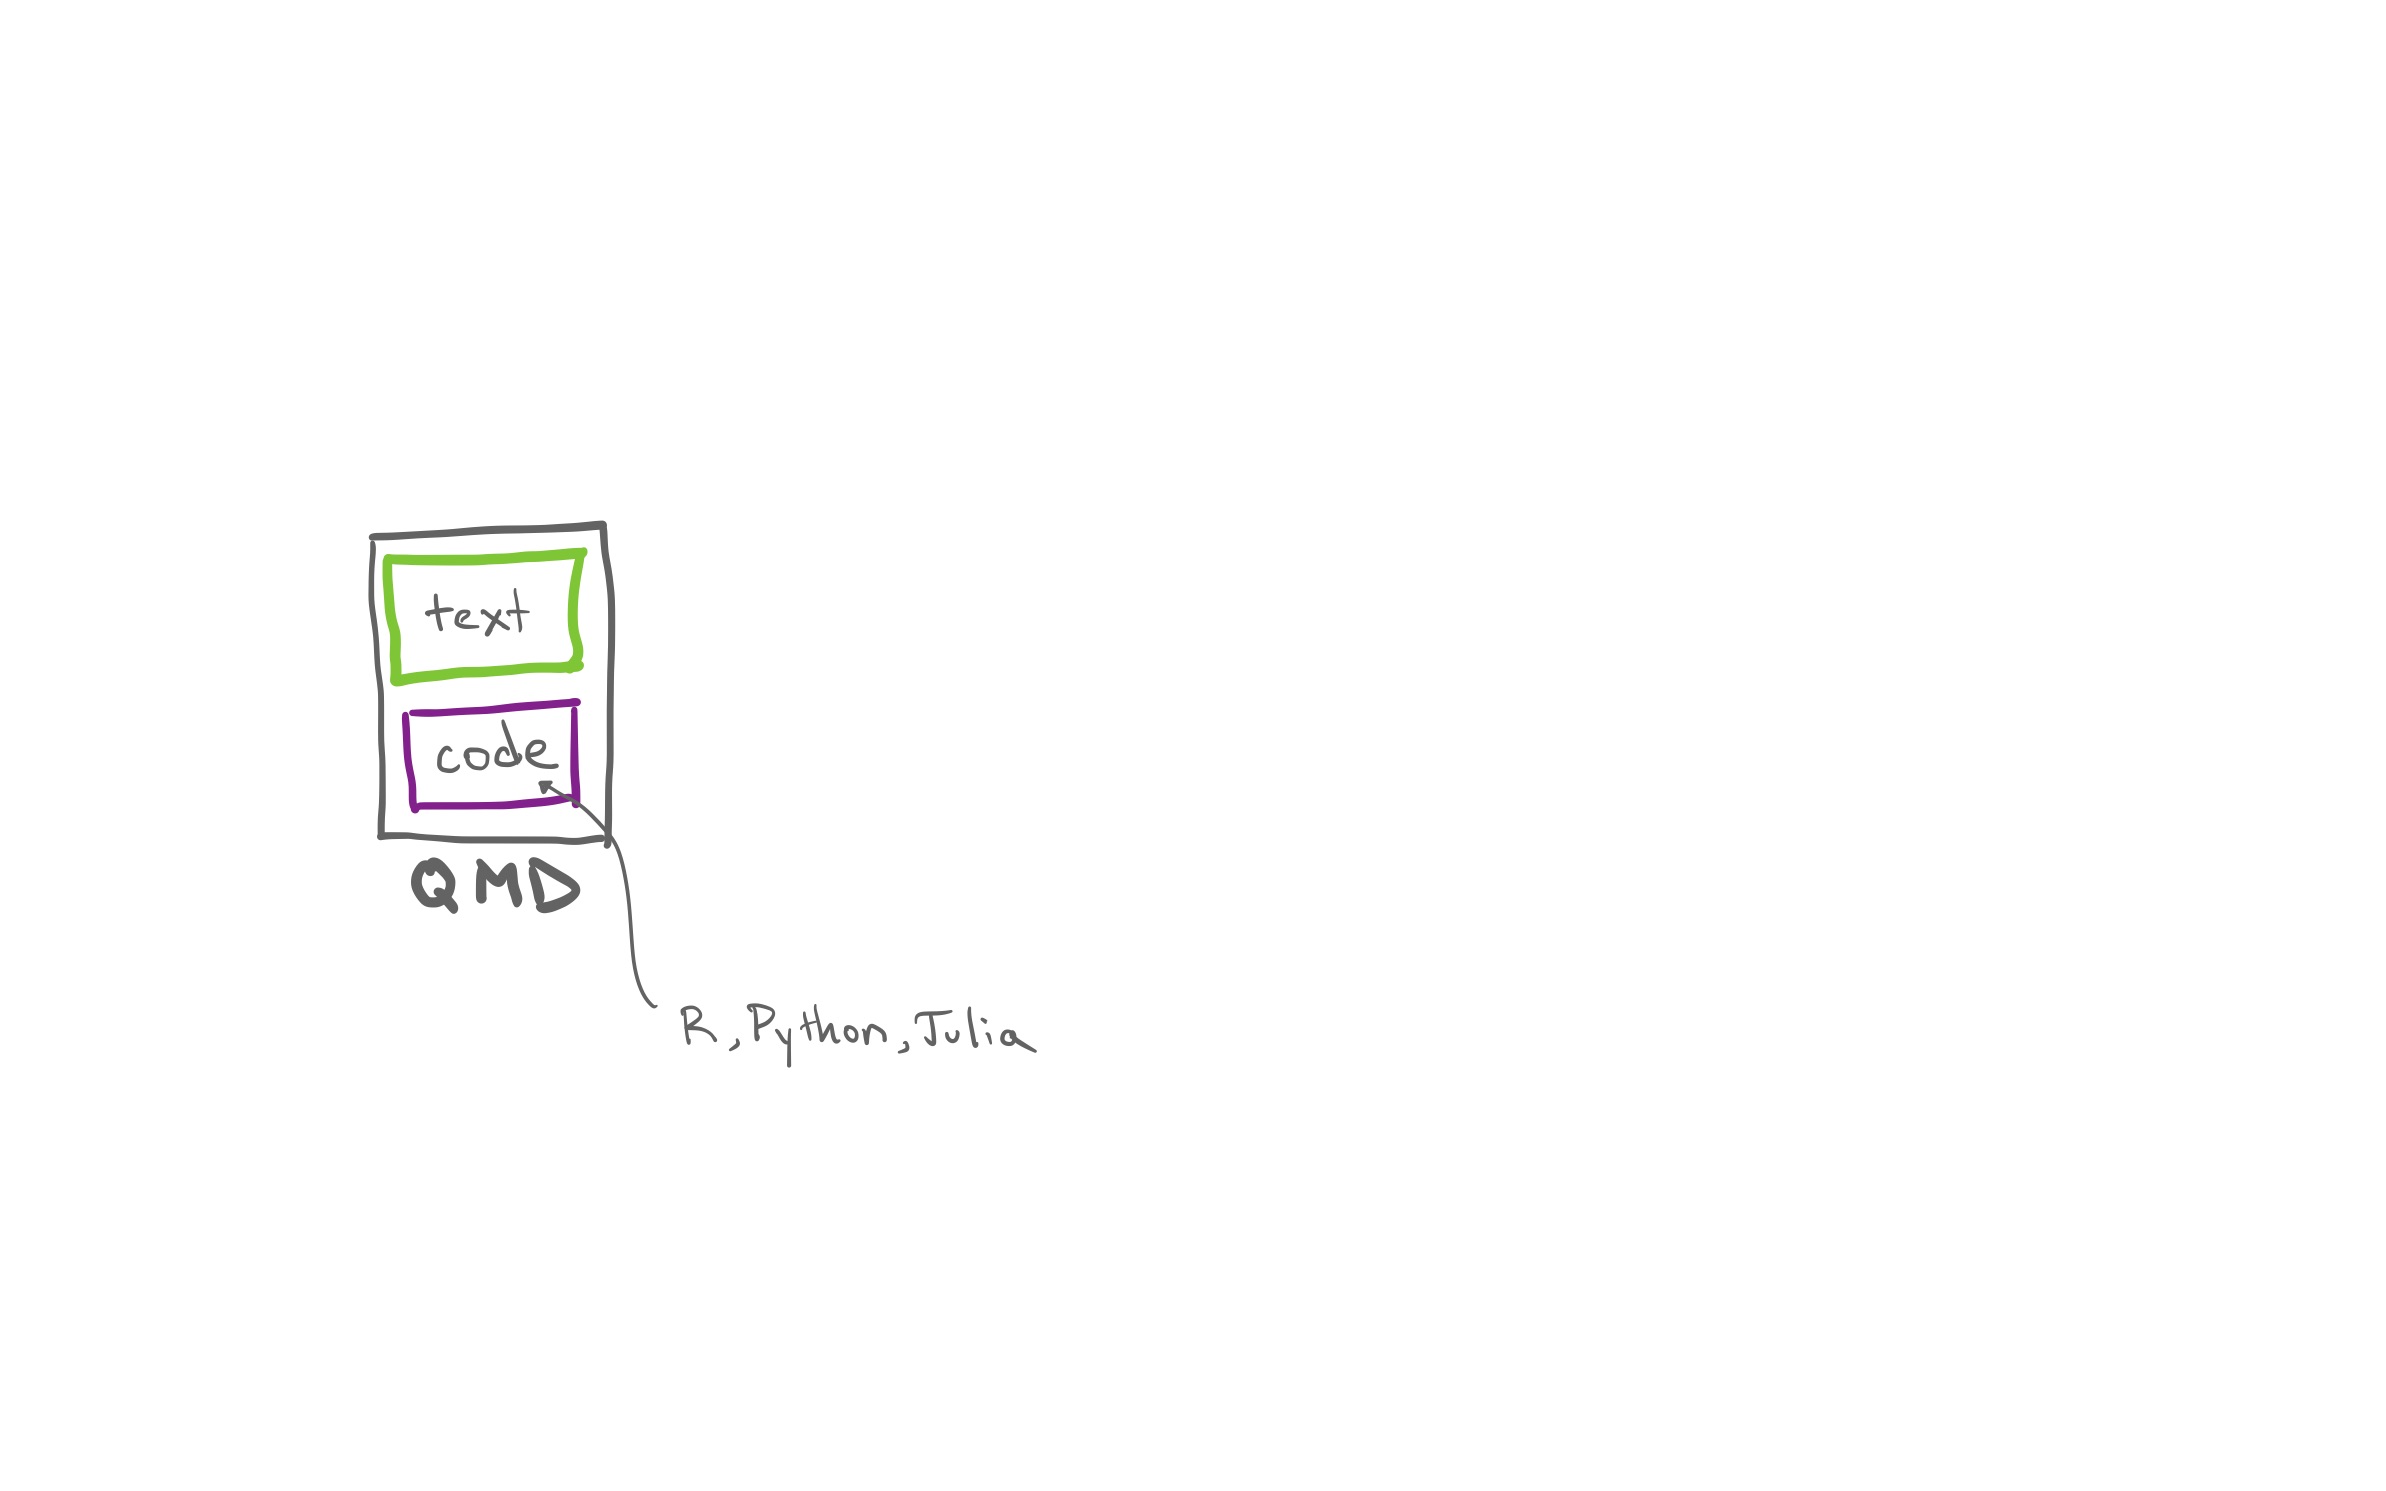 text
code
QMD
R, Python, Julia